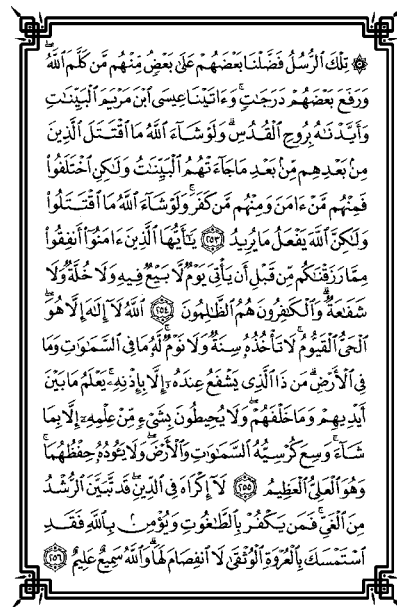 ۞ تِلْكَ ٱلرُّسُلُ فَضَّلْنَا بَعْضَهُمْ عَلَىٰ بَعْضٍۘ مِّنْهُم مَّن كَلَّمَ ٱللَّهُۖ
وَرَفَعَ بَعْضَهُمْ دَرَجَٰتٍۚ وَءَاتَيْنَا عِيسَى ٱبْنَ مَرْيَمَ ٱلْبَيِّنَٰتِ
وَأَيَّدْنَٰهُ بِرُوحِ ٱلْقُدُسِۗ وَلَوْ شَآءَ ٱللَّهُ مَا ٱقْتَتَلَ ٱلَّذِينَ
مِنۢ بَعْدِهِم مِّنۢ بَعْدِ مَا جَآءَتْهُمُ ٱلْبَيِّنَٰتُ وَلَٰكِنِ ٱخْتَلَفُوا۟
فَمِنْهُم مَّنْ ءَامَنَ وَمِنْهُم مَّن كَفَرَۚ وَلَوْ شَآءَ ٱللَّهُ مَا ٱقْتَتَلُوا۟
وَلَٰكِنَّ ٱللَّهَ يَفْعَلُ مَا يُرِيدُ ٢٥٣ يَٰٓأَيُّهَا ٱلَّذِينَ ءَامَنُوٓا۟ أَنفِقُوا۟
مِمَّا رَزَقْنَٰكُم مِّن قَبْلِ أَن يَأْتِىَ يَوْمٌ لَّا بَيْعٌ فِيهِ وَلَا خُلَّةٌ وَلَا
شَفَٰعَةٌۗ وَٱلْكَٰفِرُونَ هُمُ ٱلظَّٰلِمُونَ ٢٥٤ ٱللَّهُ لَآ إِلَٰهَ إِلَّا هُوَ
ٱلْحَىُّ ٱلْقَيُّومُۚ لَا تَأْخُذُهُۥ سِنَةٌ وَلَا نَوْمٌۚ لَّهُۥ مَا فِى ٱلسَّمَٰوَٰتِ وَمَا
فِى ٱلْأَرْضِۗ مَن ذَا ٱلَّذِى يَشْفَعُ عِندَهُۥٓ إِلَّا بِإِذْنِهِۦۚ يَعْلَمُ مَا بَيْنَ
أَيْدِيهِمْ وَمَا خَلْفَهُمْۖ وَلَا يُحِيطُونَ بِشَىْءٍ مِّنْ عِلْمِهِۦٓ إِلَّا بِمَا
شَآءَۚ وَسِعَ كُرْسِيُّهُ ٱلسَّمَٰوَٰتِ وَٱلْأَرْضَۖ وَلَا يَـُٔودُهُۥ حِفْظُهُمَاۚ
وَهُوَ ٱلْعَلِىُّ ٱلْعَظِيمُ ٢٥٥ لَآ إِكْرَاهَ فِى ٱلدِّينِۖ قَد تَّبَيَّنَ ٱلرُّشْدُ
مِنَ ٱلْغَىِّۚ فَمَن يَكْفُرْ بِٱلطَّٰغُوتِ وَيُؤْمِنۢ بِٱللَّهِ فَقَدِ
ٱسْتَمْسَكَ بِٱلْعُرْوَةِ ٱلْوُثْقَىٰ لَا ٱنفِصَامَ لَهَاۗ وَٱللَّهُ سَمِيعٌ عَلِيمٌ ٢٥٦